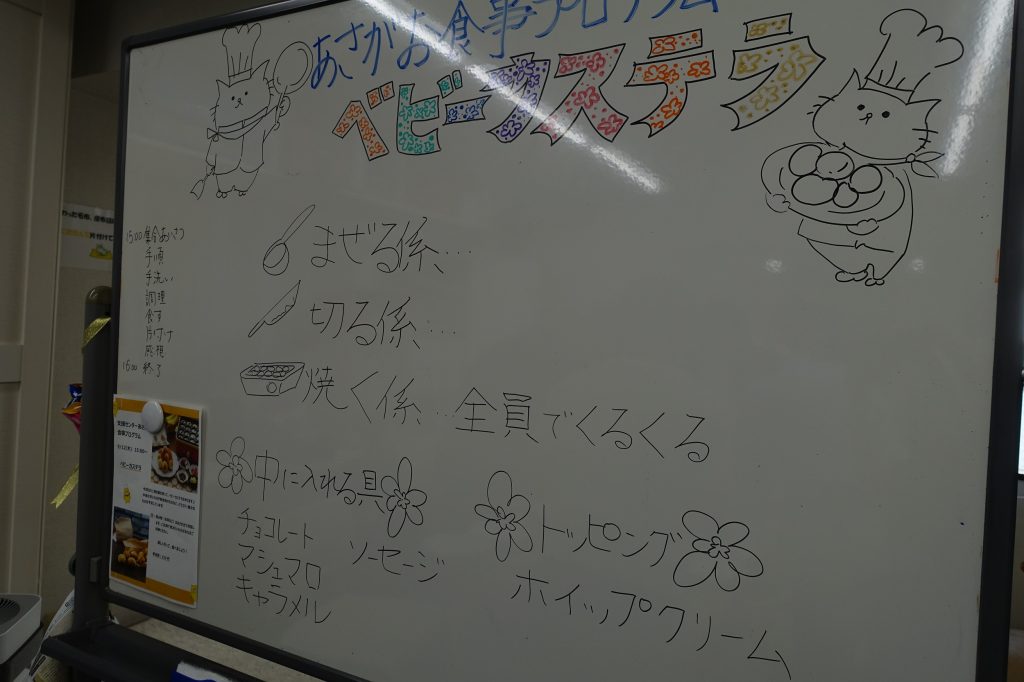 あさがお食事プログラム
ベビーカステラ
15:00 集合あいさつ
手順
手洗い
調理
食す
片付け
感想
16:00 終了
まぜる係…
切る係…
焼く係…全員でくるくる
中に入れる具
チョコレート
マシュマロ
キャラメル
ソーセージ
トッピング
ホイップクリーム
食事プログラム
ベビーカステラ